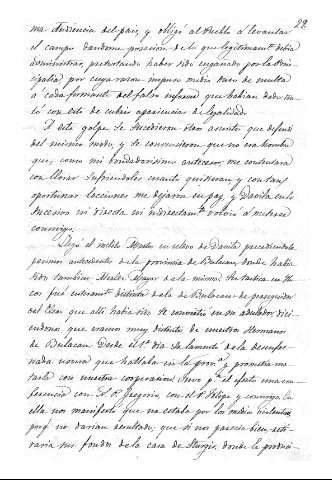 29.
ma Audiencia del pais, y obligó al Pueblo á levantar
el campo dandome posesion de lo que legitimamte debia
administrar, pretestando haber sido engañado por la Prin-
cipalia, por cuya razon impuso media de multa
á cada firmante del falso informe que habian dado
con este de cubrir apariencias de legalidad.
A este golpe se sucedieron otros asuntos que defendí
del mismo modo, y se convencieron que no era hombre
que, como mi bondadosísimo antecesor, me contentara
con llorar sufriendoles cuanto quisieran, y con tan
oportunas lecciones me dejaron en paz, y Davila en lo
sucesivo ni directa ni indirectamte volvió á meterse
conmigo.
Llegó el relevo de Davila precediendole
pesimos antecedentes de la provincia de Bulacan, donde habia
sido tambien Alcalde Mayor de la misma. Su tactica en
fue enteramte distinta de la de Bulacan: de perseguidor
del que allí habia sido se convirtió en su adulador di-
ciendonos que eramos muy distintos de nuestros Hermanos
de Bulacan. Desde el 1er dia se lamentó de la desenfre-
nada usura que hallaba en la prova y prometia ma-
tarla con nuestra cooperacion. Tuvo pa el efecto una con-
ferencia con S. P. Gregorio, con el P. Felipe y conmigo. En
ella nos manifestó que no estaba por los medios violentos
porqe no darian resultado; que si nos parecia bien, esti-
raria sus fondos de la casa de Sturgis, donde le produci-